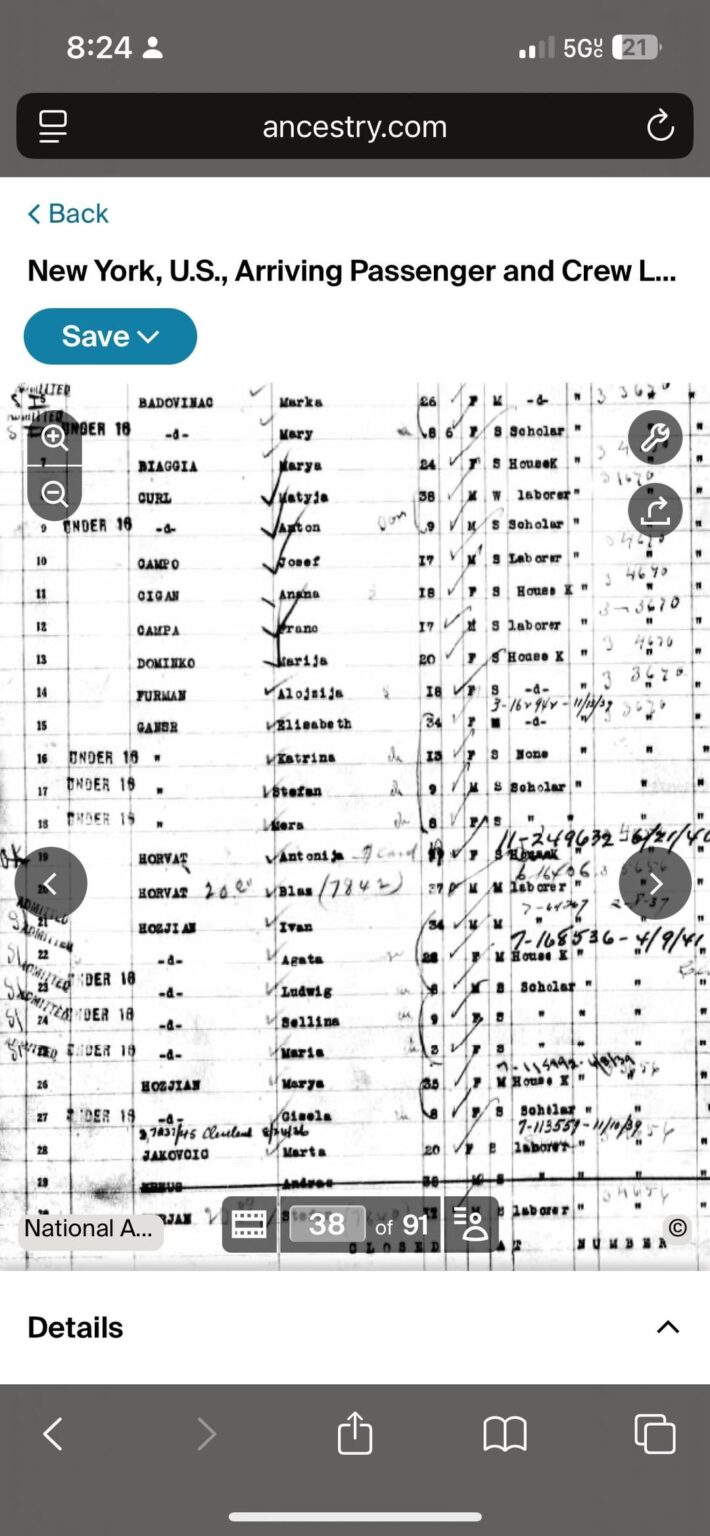 8:24
5G
21
ancestry.com
Back
New York, U.S., Arriving Passenger and Crew L...
Save
BADOVINAC Marka 26 F M -d- "
UNDER 16 -d- Mary 8 6 F S Scholar "
7 BIAGGIA Marya 24 F S HouseK "
CURL Matyja 38 M W laborer "
9 UNDER 16 -d- Anton 9 M S Scholar "
10 CAMPO Josef 17 M S Laborer "
11 CIGAN Anana 18 F S House K " 3 4670
12 CAMPA Franc 17 M S laborer " 3-3670
13 DOMINKO Marija 20 F S House K " 3 4670
14 FURMAN Alojzija 18 F S -d- " 3 3670
3-16 11/13/39
15 GANSR Elisabeth 34 F -d- " 3670
16 UNDER 16 " Katrina 13 F S None " "
17 UNDER 16 " Stefan 9 M S Scholar " "
18 UNDER 16 " Mera 8 F S " "
11-249632
19 HORVAT Antonija F S
HORVAT Blas (7842) 37 M M laborer "
ADMITTED 21 HOZJIAN Ivan 34 M M " "
7-168536-4/9/41
ADMITTED 22 -d- Agata 28 F M House K "
ADMITTED 23 UNDER 16 -d- Ludwig 8 M S Scholar "
ADMITTED 24 UNDER 16 -d- Sellina 9 S " "
UNDER 16 -d- Maria 3 F S " "
26 HOZJIAN Marya 35 F M House K "
27 UNDER 16 -d- Gisela 8 F S Scholar "
Cleveland 7-113559-11/10/39
28 JAKOVCIC Marta 20 F S laborer "
Andras 38 M S
laborer "
CLOSED AT NUMBER
National A...
38 of 91
©
Details